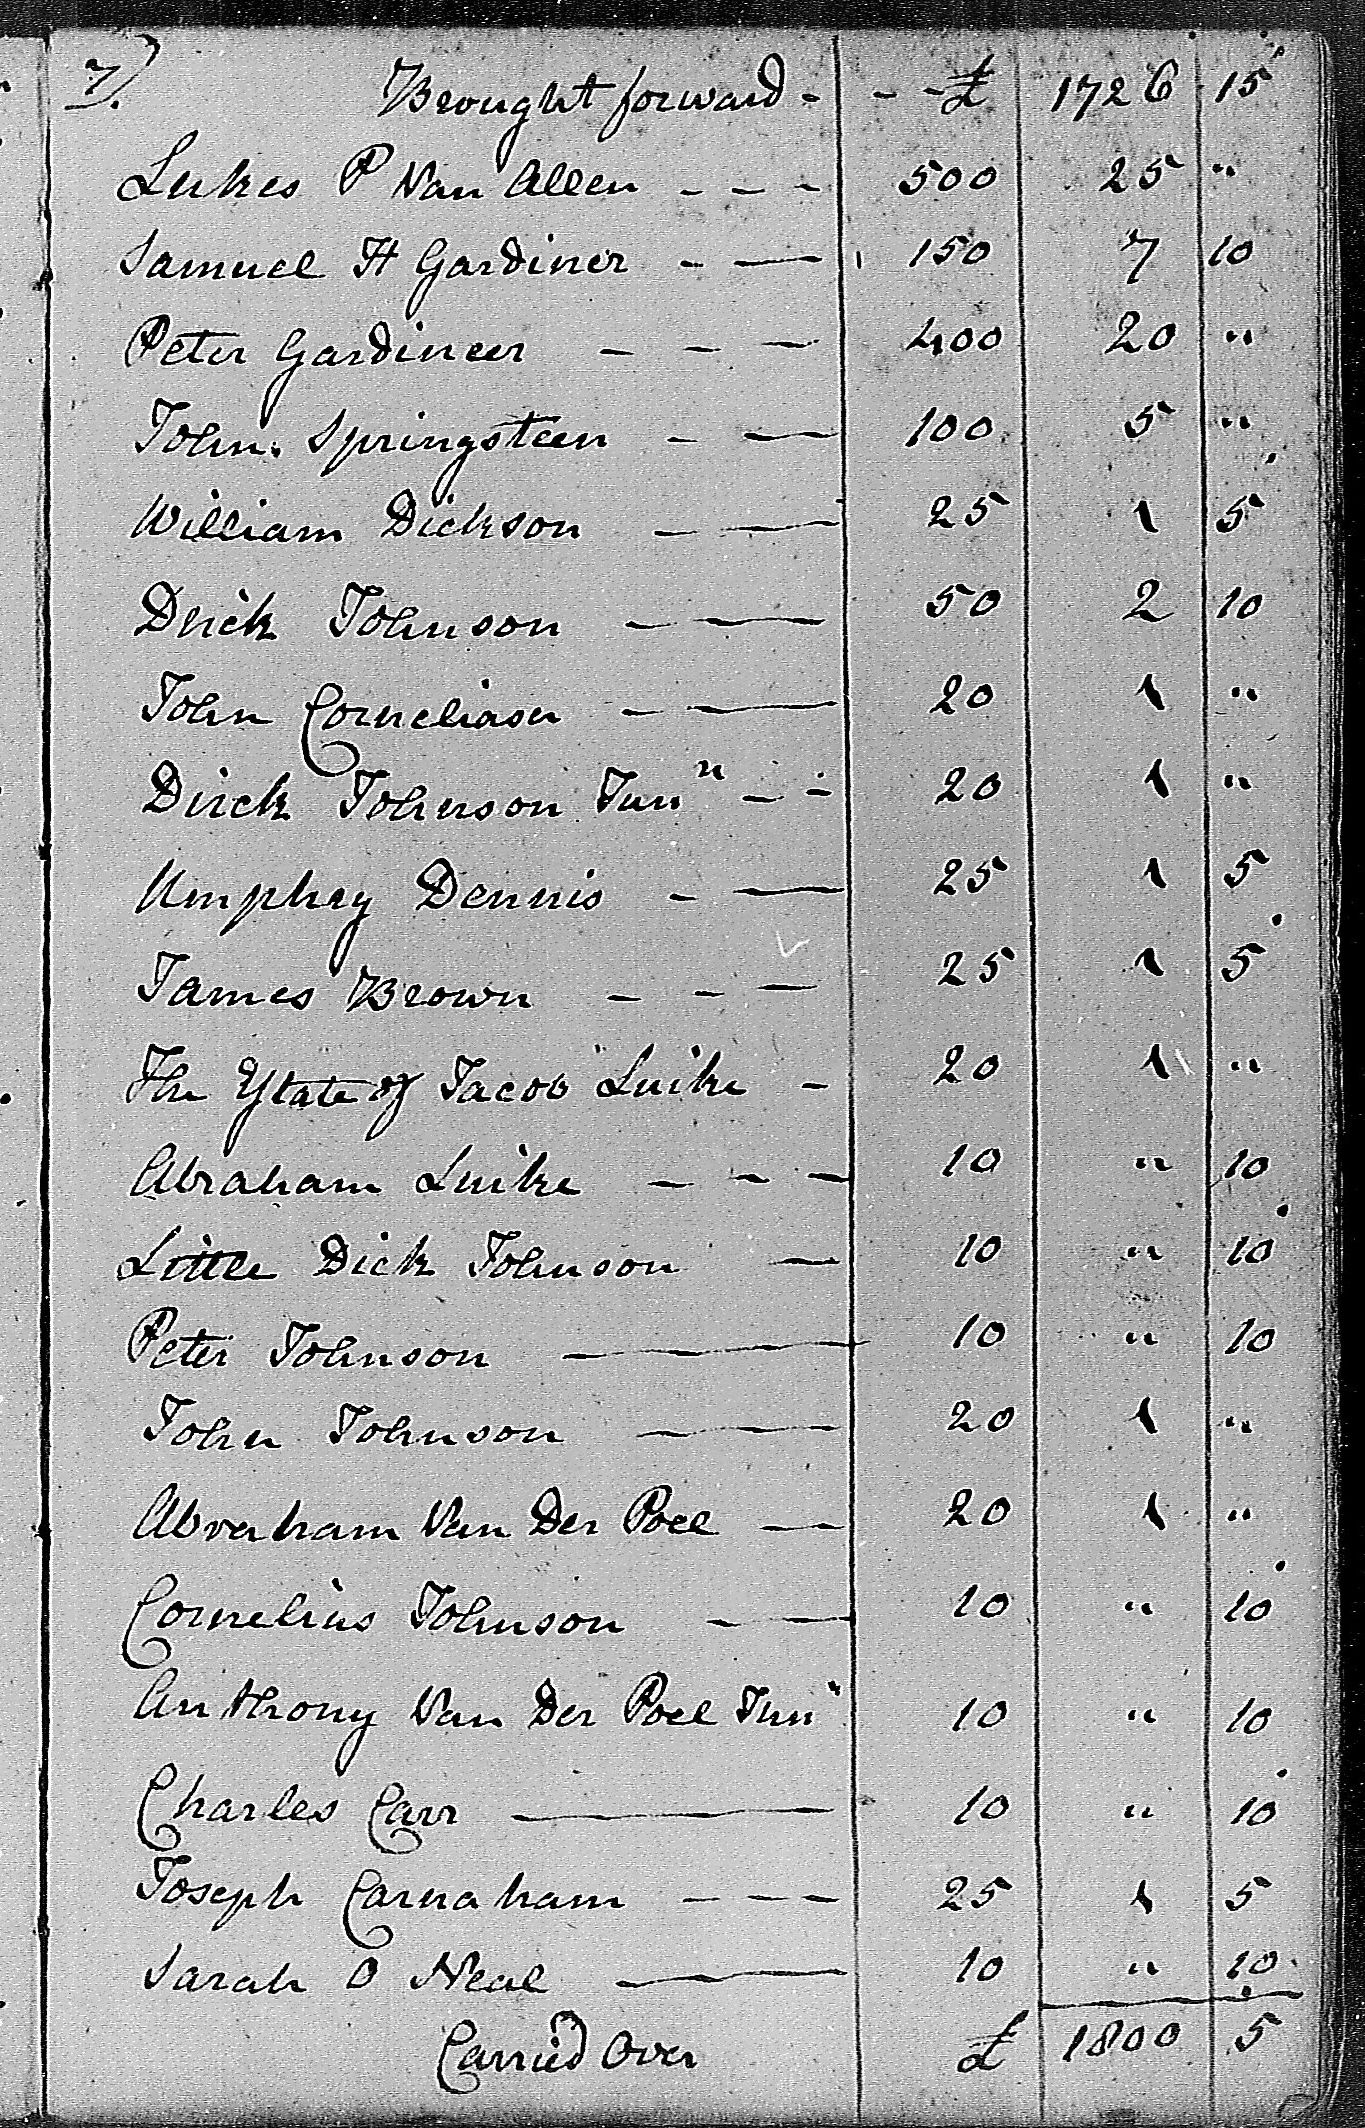 7). Brought forward - - - - £ 1726 15
Lukes P Van Allen - - - 500 25 "
Samuel H Gardiner - — 150 7 10
Peter Gardineer - - - 400 20 "
John Springsteen - — 100 5 "
William Dickson - — 25 1 5
Dirick Johnson - — 50 2 10
John Corneliason - — 20 1 "
Dirck Johnson Junr - - 20 1 "
Umphrey Dennis - — 25 1 5
James Brown - - - 25 1 5
The Estate of Jacob Luike - 20 1 "
Abraham Luike - - - 10 " 10
Little Dick Johnson — 10 " 10
Peter Johnson — 10 " 10
John Johnson — 20 1 "
Abraham Van Der Poel — 20 1 "
Cornelius Johnson - — 10 " 10
Anthony Van Der Poel Junr 10 " 10
Charles Carr — 10 " 10
Joseph Carnaham - - - 25 1 5
Sarah O Neal — 10 " 10
Carried Over £ 1800 5